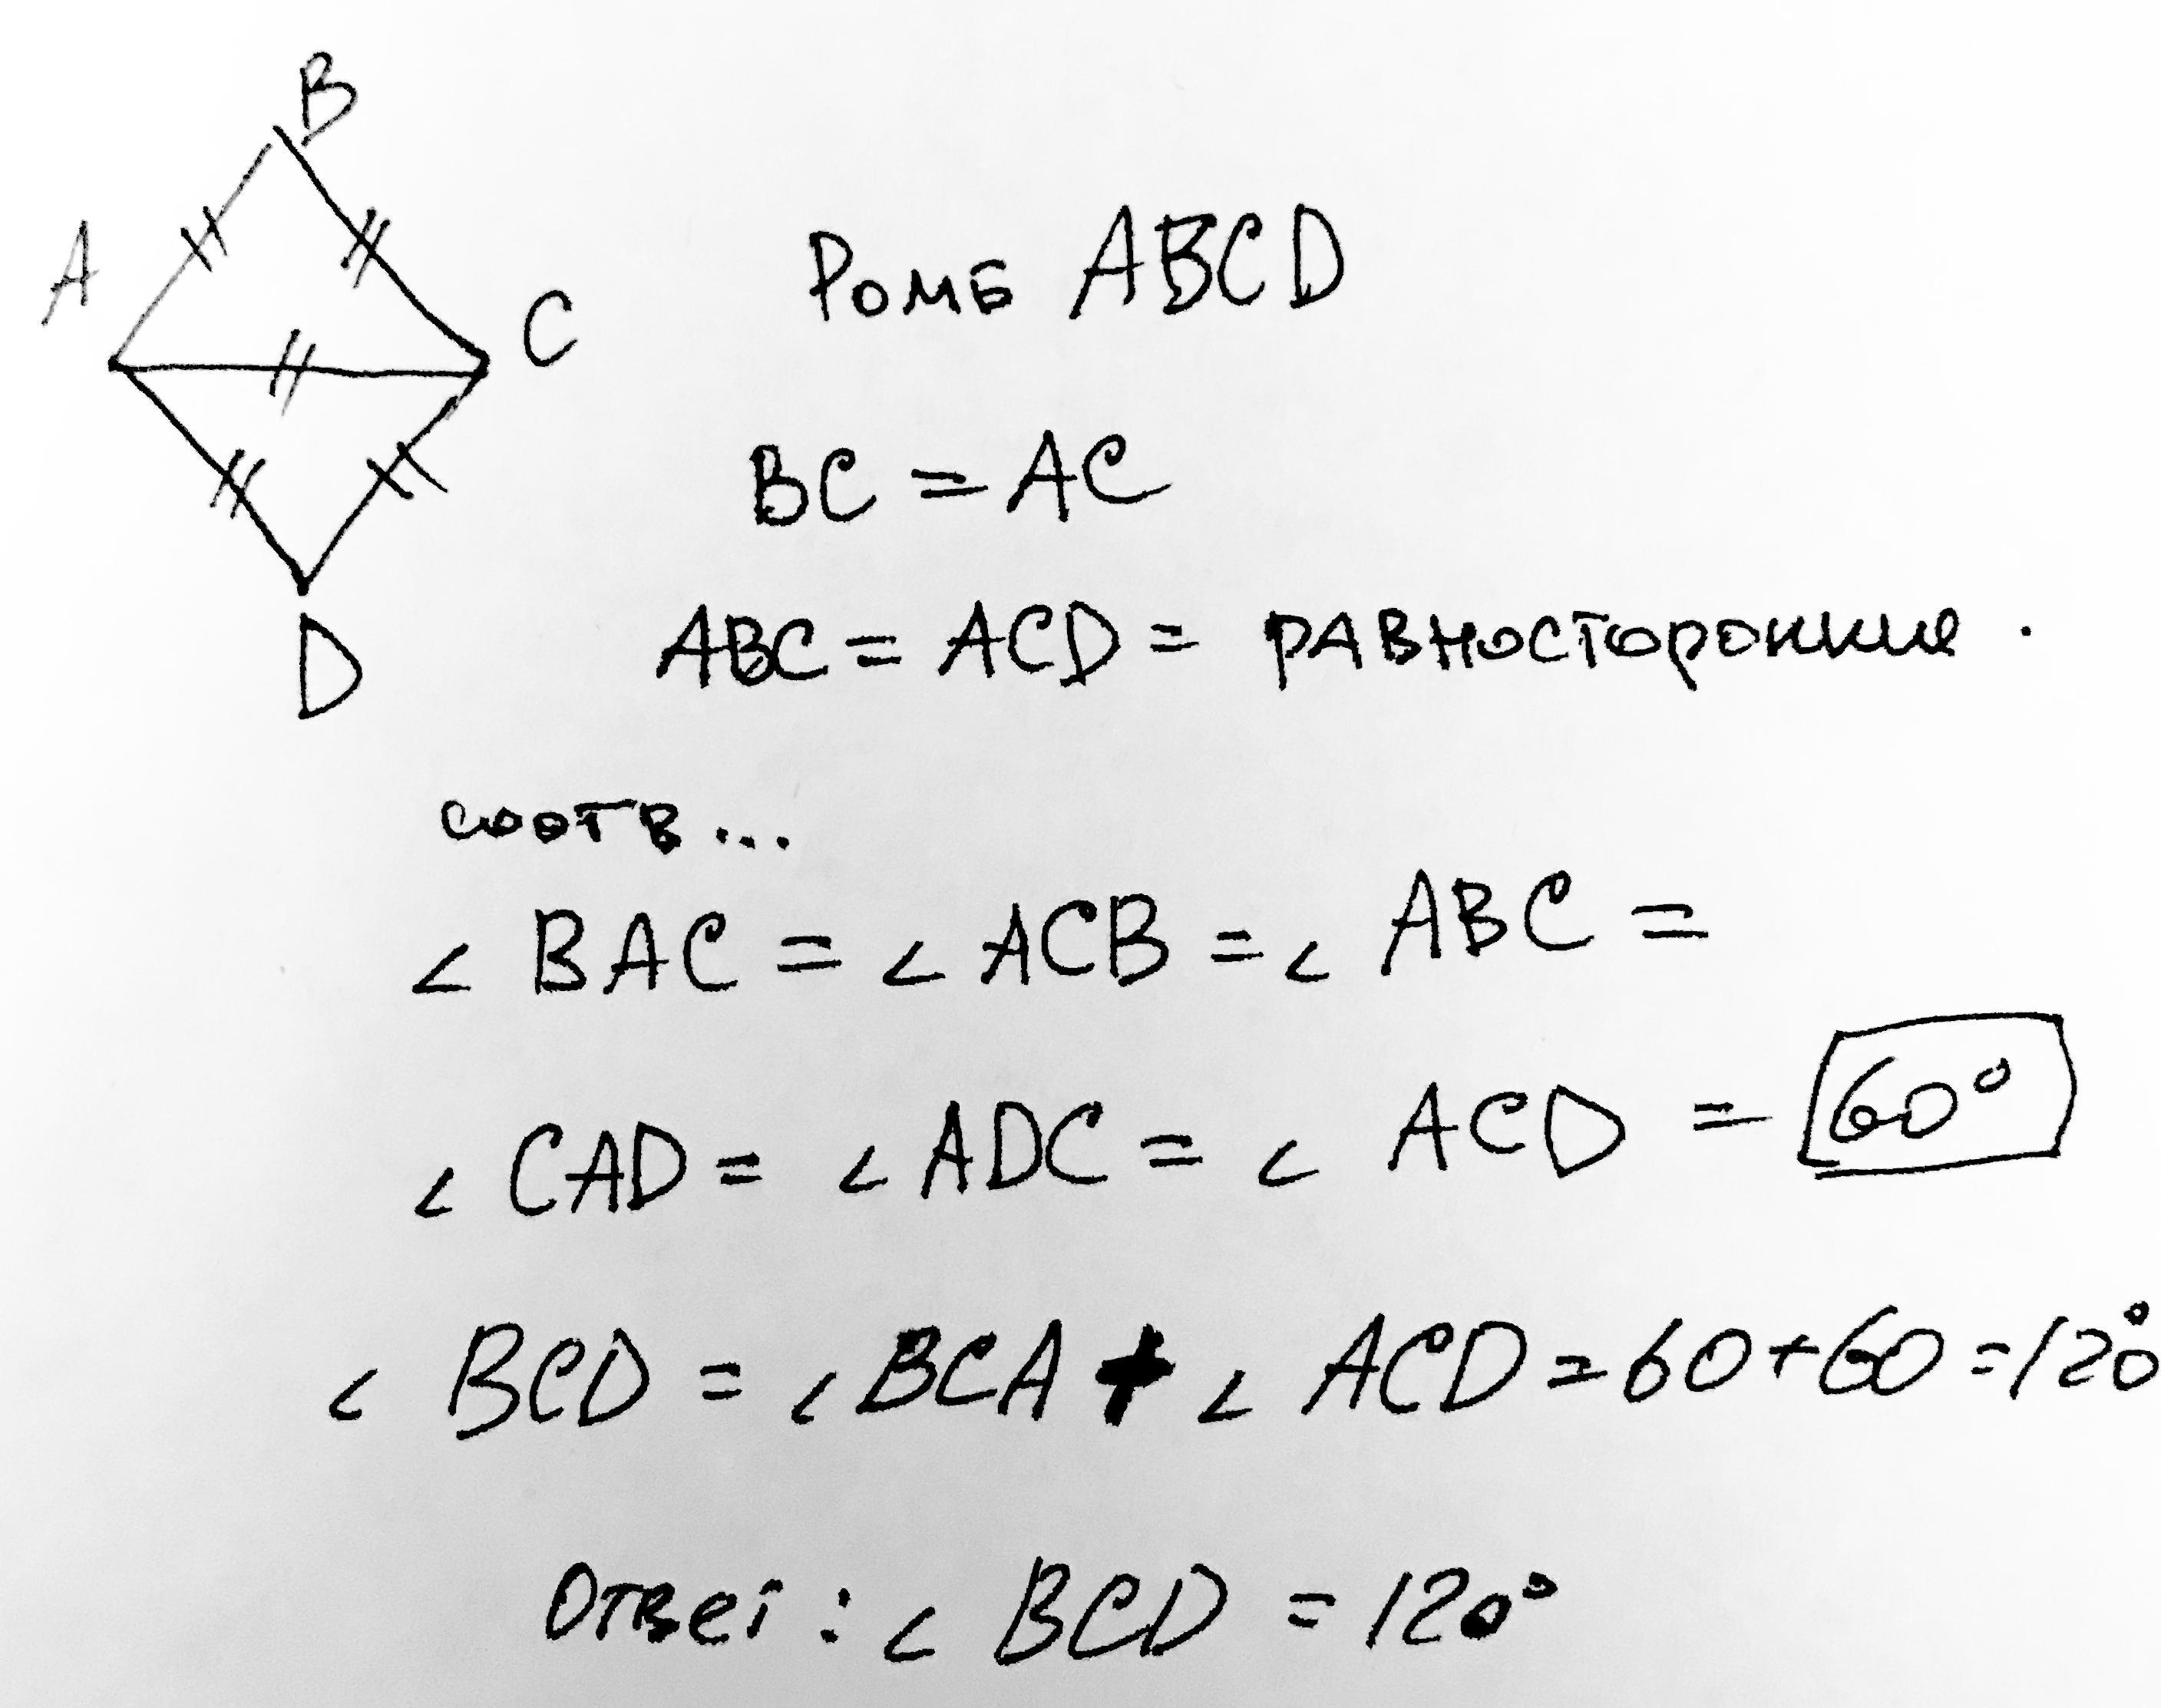 B
A
C
D
Ромб ABCD
BC = AC
ABC = ACD = РАВНОСТОРОННИЕ.
соотв...
∠ BAC = ∠ ACB = ∠ ABC =
∠ CAD = ∠ ADC = ∠ ACD = 60°
∠ BCD = ∠ BCA + ∠ ACD = 60+60 = 120°
Ответ: ∠ BCD = 120°